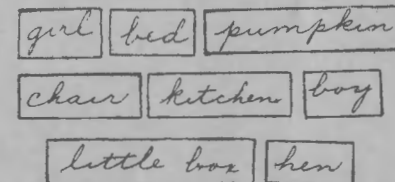 girl bed pumpkin
chair kitchen boy
little box hen